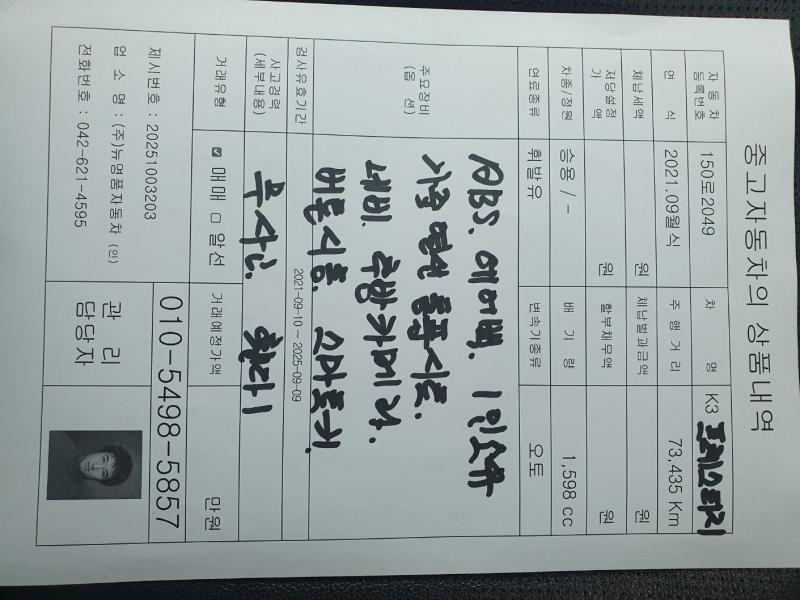 중고자동차의 상품내역
자동차 등록번호 150로2049 차 명 K3 프레스티지
연 식 2021.09월식 주행거리 73,435 Km
체납세액 원 체납범과금액 원
저당설정 가 액 원 할부채무액 원
차종/정원 승용 / - 배 기 량 1,598 cc
연료종류 휘발유 변속기종류 오토
주요장비 (옵 션) ABS. 에어백. 1인소유
열선 통풍시트.
네비. 후방카메라.
버튼시동. 스마트키.
검사유효기간 2021-09-10 ~ 2025-09-09
사고경력 (세부내용) 무사고. 휀다1
거래유형 ☑ 매매 □ 알선 거래예정가액 만원
제시번호 : 20251003203
업 소 명 : (주)뉴명품자동차 (인)
전화번호 : 042-621-4595
관 리 담당자 010-5498-5857